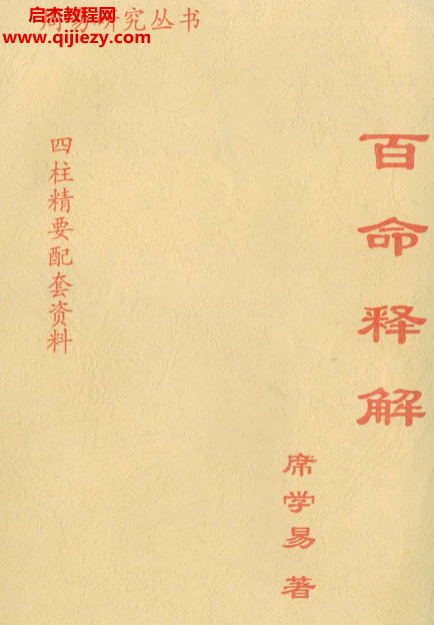 周易研究丛书
启杰教程网
www.qijiezy.com
百命释解
四柱精要配套资料
席学易 著